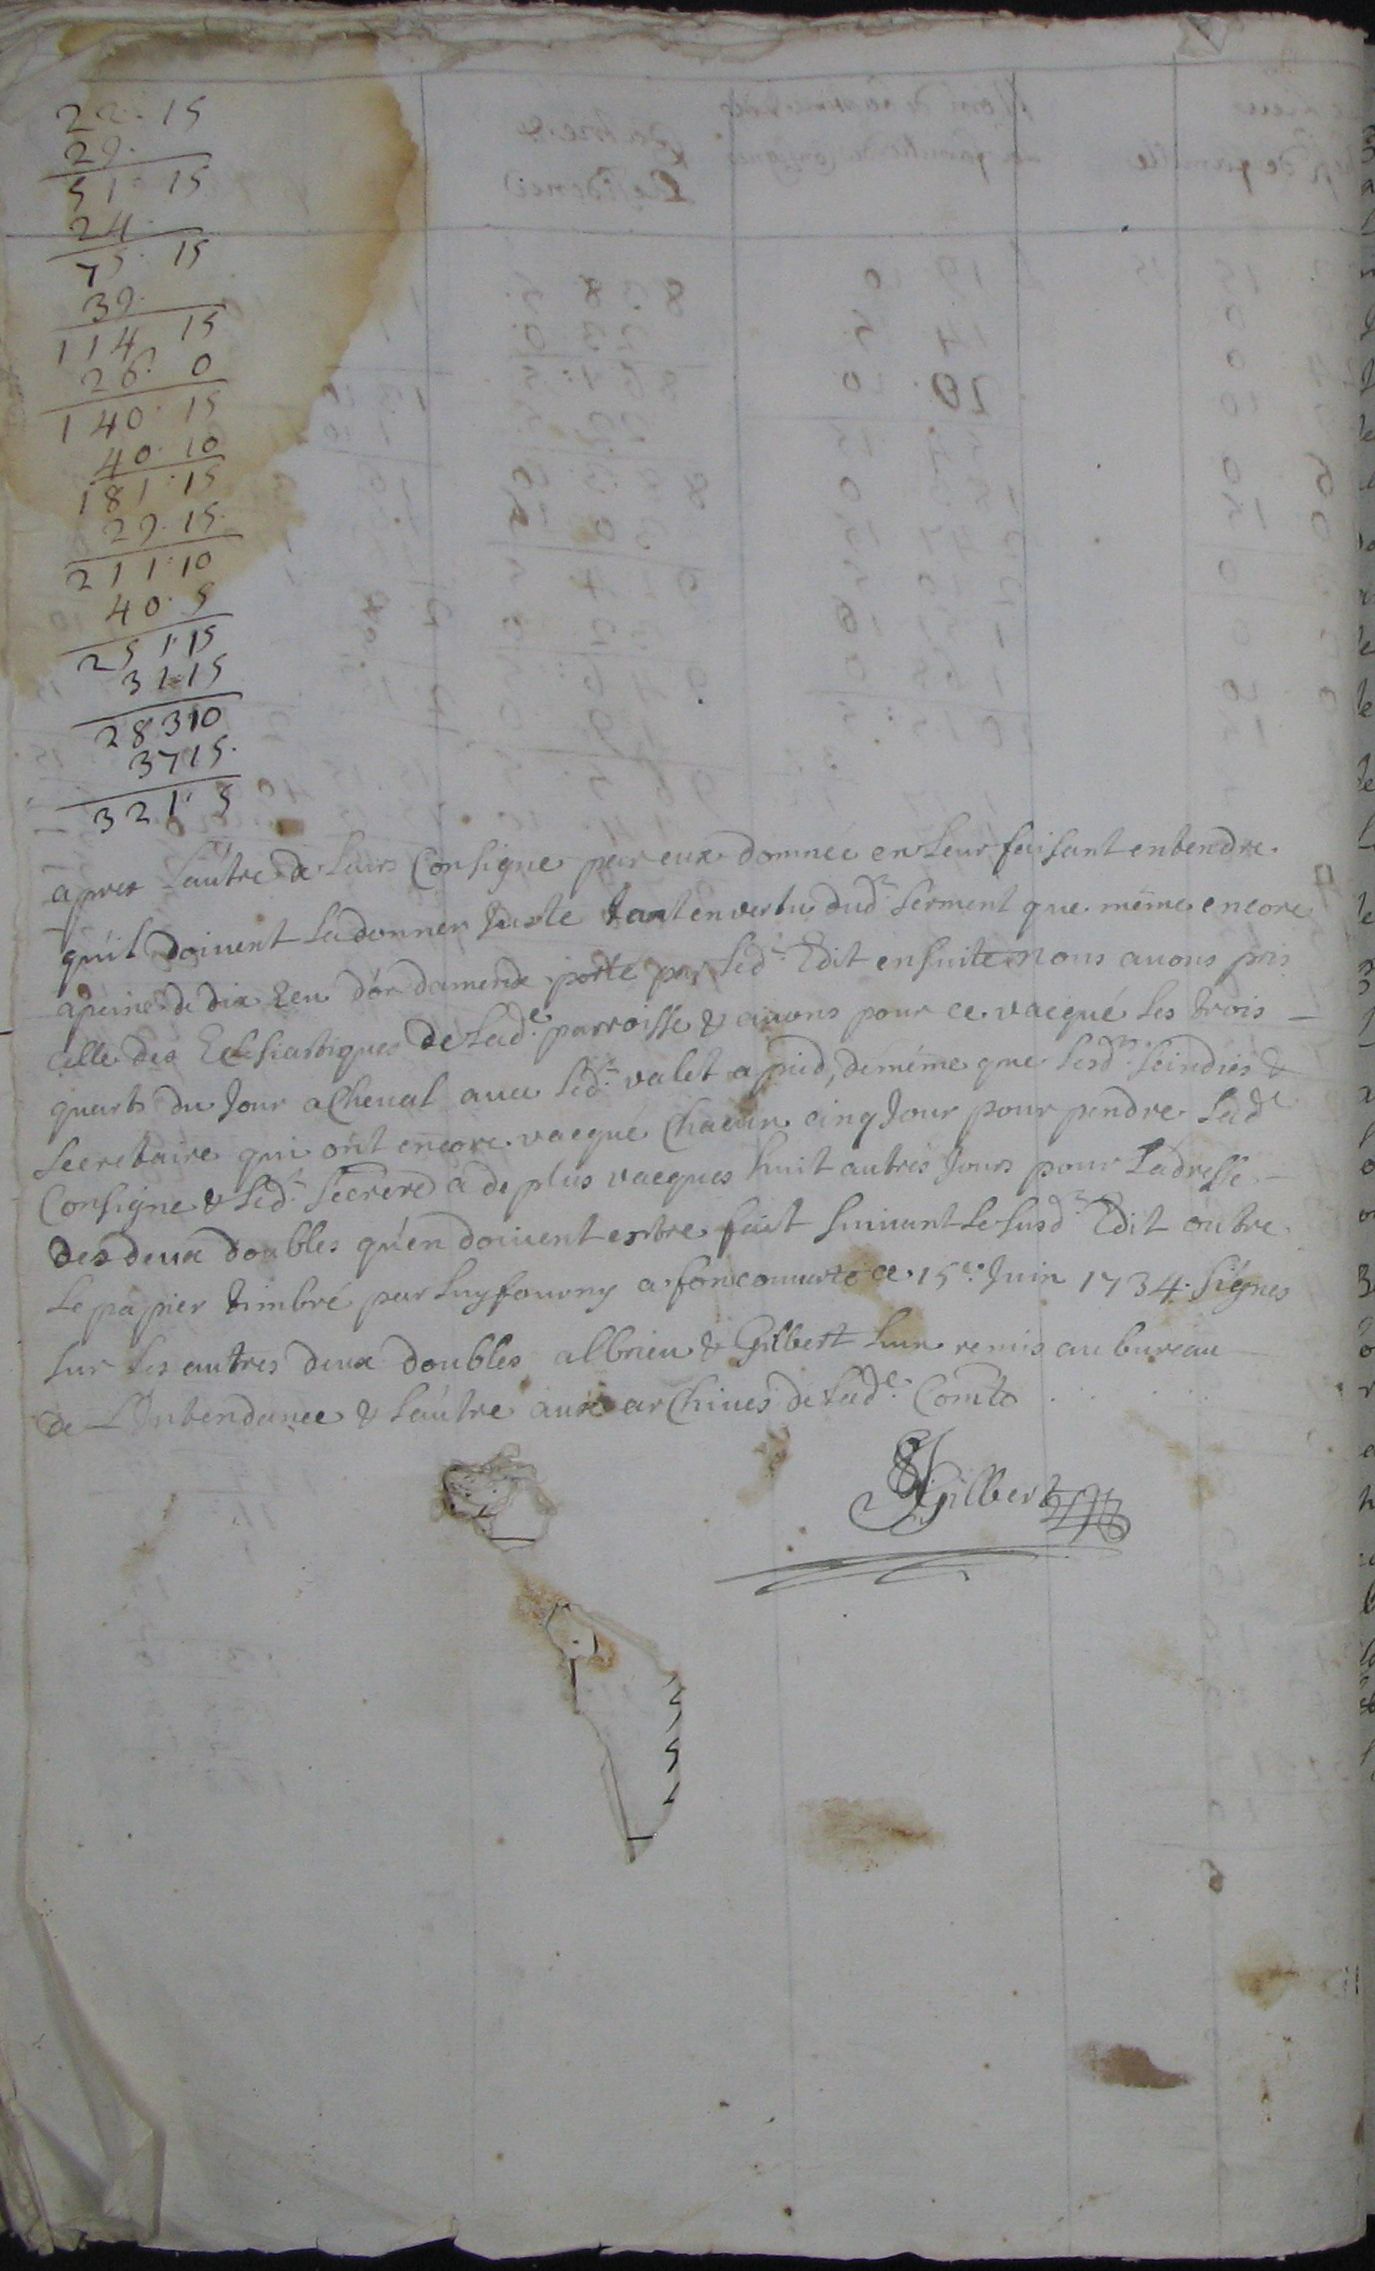 22. 15
29.
51. 15
24.
75. 15
39.
114 15
26. 0
140. 15
40. 10
181. 15
29. 15.
211. 10
40. 5
251. 15
31. 15
283 10
37 15.
321. 5
apres L'autre de Leurs Consigne par eux donnée en Leur faisant entendre
qu'il doivent La donner Juste tant en vertu dud.t Serment que même encore
a peine de dix Ecu d'or d'amende porté par Led.t Edit ensuite nous avons pris
celle des Eclesiastiques de Lad.e parroisse & avons pour ce vacqué Les trois
quarts du Jour a Cheval avec Led.t valet a pied, de même que Lesd.ts Scindics &
Secretaire qui ont encore vacqué Chacun cinq Jour pour prendre Lad.e
Consigne & Led.t Secre.re a de plus vacques huit autres Jours pour L'adresse
des deux doubles qu'en doivent estre fait suivant Le susd.t Edit outre
Le papier timbré par Luy fourny a foncouverte ce 15.e Juin 1734. Signes
sur Les autres deux doubles albrieu & Gilbert L'un remis au bureau
de L'Intendance & L'autre aux arChives de Lad.e Comté
Gilbert